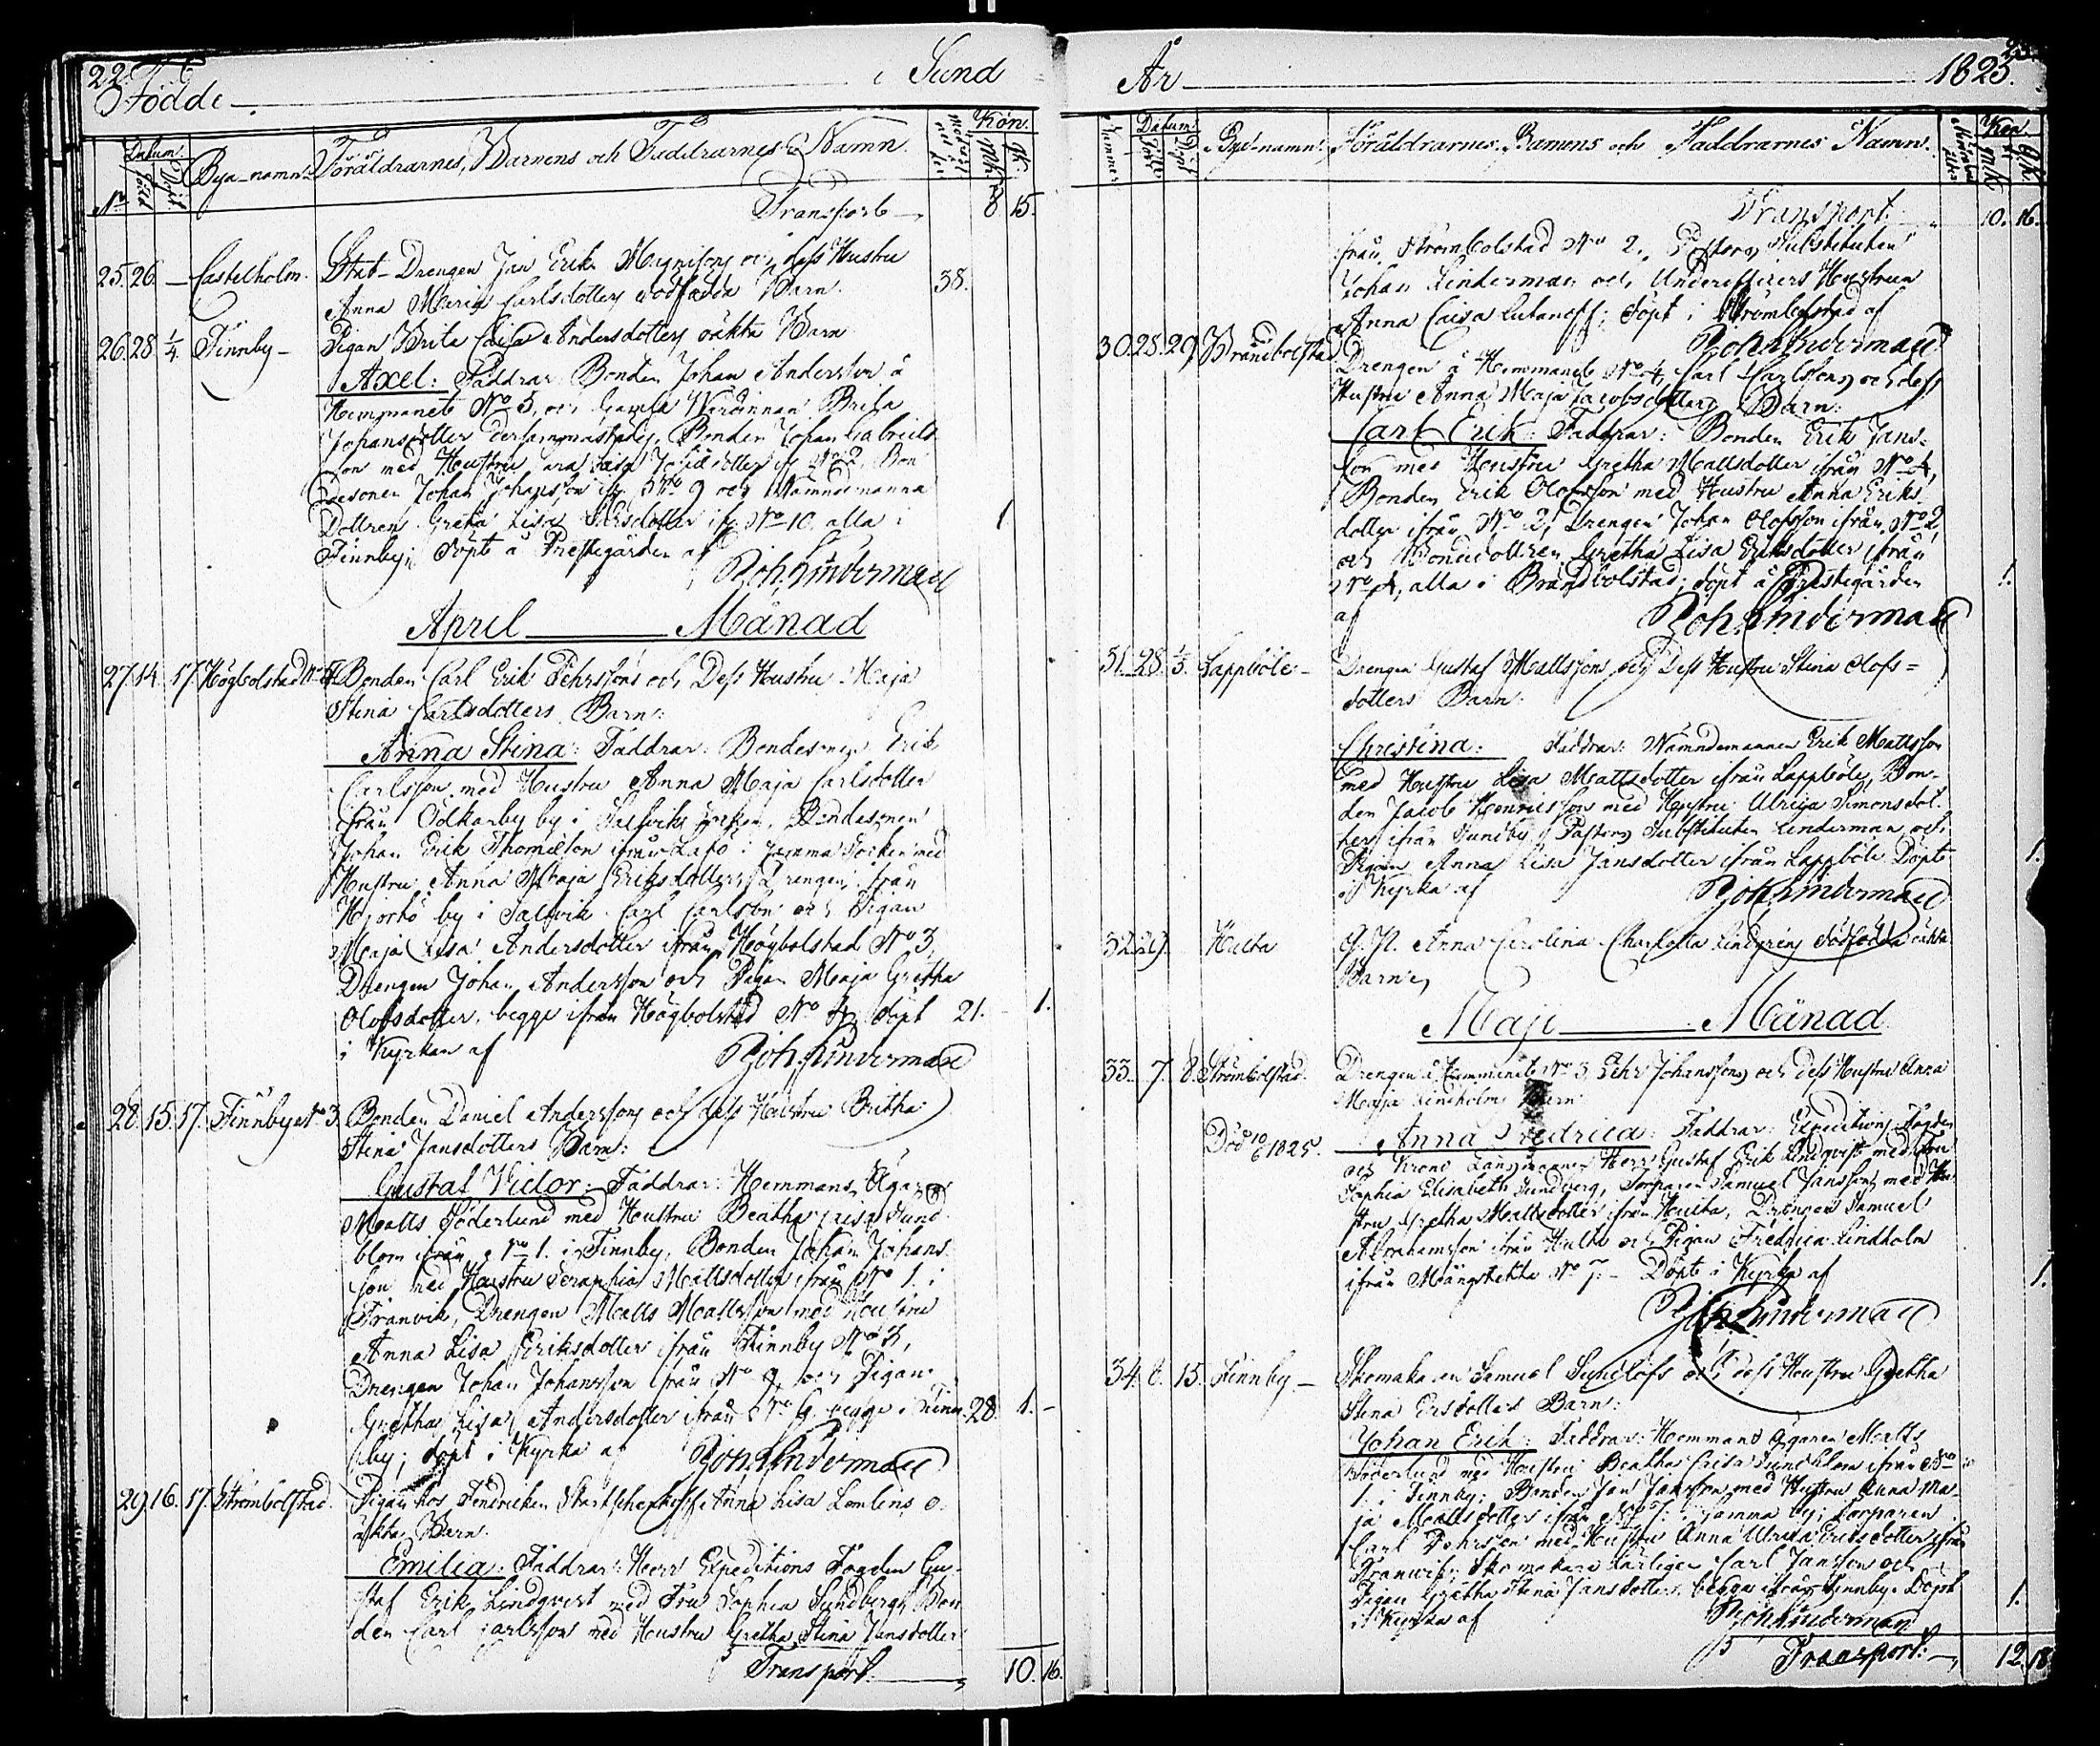 22.
Födde i Sund
No Datum. Född Döpt Bya-namn. Föräldrarnes, Barnens och Faddrarnes Namn. Kön. Mk. Qk.
Transport 8 15.
25. 26. — Castelholm. Stat-Drengen Jan Erik och dess Hustru
Anna Maria Carlsdotters dödfödda Barn. 38.
26. 28. 1/4. Finnby — Pigan Brita Caisa Andersdotters oäkta Barn
Axel: Faddrar: Bonden Johan Andersson å
Hemmanet No 5, och Gamla Wärdinnan Brita
Johansdotter dersammastädes, Bonden Johan Gabriels-
son med Hustru Caisa No 2, Bon-
desonen Johan Johansson ifr. No 9 och Nämndemanna
Dottren Greta Lisa ifr. No 10 alla i 1
Finnby; döpt å Prestegården af
Joh. Linderman
April Månad
27. 14. 17. Högbolstad No 4 Bonden Carl Erik Pehrssons och Dess Hustru Maja
Stina Carlsdotters Barn:
Anna Stina: Faddrar: Bondesonen Erik
Carlsson med Hustru Anna Maja Carlsdotter
ifrån Ödkarby by i Saltviks Socken, Bondesonen
Johan Erik ifrån i samma Socken med
Hustru Anna Maja Eriksdotter, Drengen ifrån
by i Saltvik Carl Carlsson och Pigan
Maja Lisa Andersdotter ifrån Högbolstad No 3,
Drengen Johan Andersson och Pigan Maja Gretha
Olofsdotter, begge ifrån Högbolstad No 4, döpt 21. 1.
i Kyrkan af Joh. Linderman
28. 15. 17. Finnby No 3. Bonden Daniel Anderssons och dess Hustru Britha
Stina Jansdotters Barn:
Gustaf Victor: Faddrar: Hemmans Ägaren
Matts Söderlund med Hustru Beatha Caisa Sund-
blom ifrån No 1. i Finnby, Bonden Johan Johans-
son med Hustru Seraphia Mattsdotter ifrån No 1. i
Tranvik, Drengen Matts Mattsson med Hustru
Anna Lisa Eriksdotter ifrån Finnby No 3,
Drengen Johan Johansson ifrån No 9, och Pigan
Gretha Lisa Andersdotter ifrån No 9 begge i Finn- 28. 1. –
by; döpt i Kyrka af Joh. Linderman
29. 16. 17. Strömbolstad. Pigan hos Fendriken Anna Lisa o-
äkta Barn.
Emilia: Faddrar: Herr Expeditions Fogden Gu-
staf Erik Lindqvist med Fru Sophia Sundberg, Bon-
den Carl Carlsson med Hustru Gretha Stina Jansdotter
Transport. 10. 16.
År 1825. 23.
Nummer Datum. Född Döpt Bye-namn. Föräldrarnes, Barnens och Faddrarnes Namn. Kön. Mk. Qk.
Transport. 10. 16.
ifrån Strömbolstad No 2., Pastors Substituten
Johan Linderman och Underofficers Hustrun
Anna Caisa Lutanoff; döpt i Strömbolstad af
Joh. Linderman
30. 25. 29. Brändbolstad Drengen å Hemmanet No 4, Carl Carlssons och dess
Hustru Anna Maja Jacobsdotters Barn:
Carl Erik: Faddrar: Bonden Erik Jans-
son med Hustru Gretha Mattsdotter ifrån No 4,
Bonden Erik Olofsson med Hustru Anna Eriks-
dotter ifrån No 2, Drengen Johan Olofsson ifrån No 2
och Bondedottren Gretha Lisa Eriksdotter ifrån
No 4, alla i Brändbolstad; döpt å Prestegården 1.
af Joh. Linderman
31. 28. 1/5. Lappböle – Drengen Gustaf Mattssons och Dess Hustru Stina Olofs=
dotters Barn:
Christina: Faddrar: Nämndemannen Erik Mattsson
med Hustru Lisa Mattsdotter ifrån Lappböle, Bon-
den Jacob Henricsson med Hustru Ulrica Simonsdot-
ter ifrån Sundby, Pastors Substituten Linderman och
Pigan Anna Lisa Jansdotter ifrån Lappböle. Döpt 1.
i Kyrka af Joh. Linderman
32. 29. Hulta Anna Carolina Charlotta Lindgrens dödfödda oäkta
Barn
Maji Månad
33. 7. 8. Strömbolstad. Drengen å Hemmanet No 3 Pehr Johanssons och dess Hustru Anna
Maja Lindholms Barn
Död 10/6 1825. Anna Fredrica: Faddrar: Expeditions Fogden
och Krono Länsmannen Herr Gustaf Erik Lindqvist med Fru
Sophia Elisabeth Sundberg, Torparen Samuel Jansson med Hu-
stru Gretha Mattsdotter ifrån Hulta, Drengen Samuel
Abrahamsson ifrån Hulta och Pigan Fredrica Lindholm
ifrån Mångstekta No 7. – Döpt i Kyrka af 1.
Joh. Linderman
34. 8. 15. Finnby. – Skomakaren Samuel Sundlöfs och dess Hustru Gretha
Stina Ersdotters Barn:
Johan Erik: Faddrar: Hemmans Ägaren Matts
Söderlund med Hustru Beatha Caisa Sundblom ifrån No
1. i Finnby; Bonden Jan Jansson med Hustru Anna Ma-
ja Mattsdotter ifrån No 5. i samma by; Torparen
Carl Pehrsson med Hustru Anna Ulrica Ericsdotter ifrån
Tranvik; Skomakare Lärlingen Carl Jansson och
Pigan Gretha Stina Jansdotter, begge ifrån Finnby. Döpt 1.
i Kyrka af Joh. Linderman
Transport. 12. 18